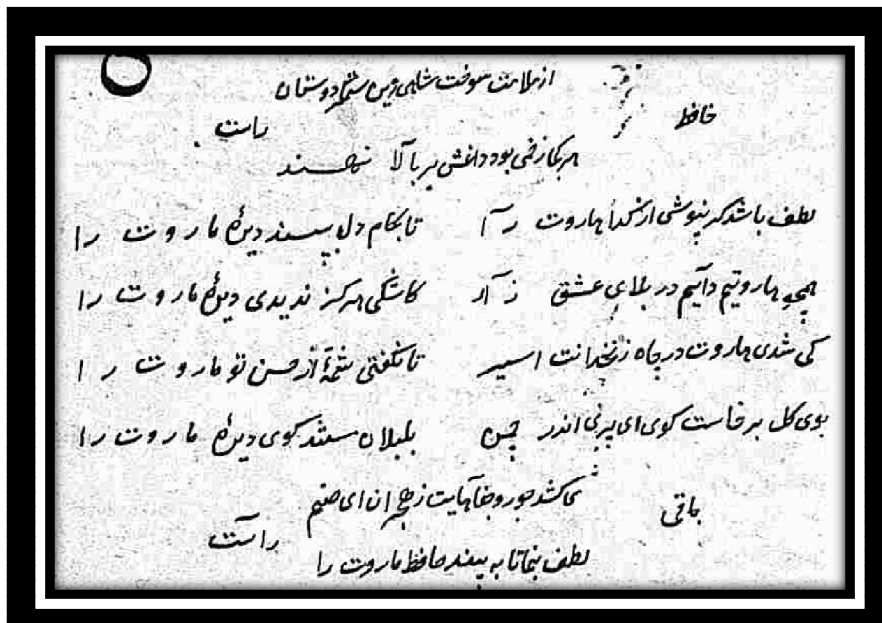 از ملامت سوخت شاهی وین ستم از دوستان
حافظ راست
هر کجا زخمی بود داغش بر بالا نهند
لطف باشد گر نپوشی از گدا هاروت را تا بکام دل ببیند دیدهٔ ماروت را
همچو هاروتیم دایم در بلای عشق زار کاشکی هرگز ندیدی دیدهٔ ماروت را
کی شدی هاروت در چاه زنخدانت اسیر تا نگفتی شمهٔ از حسن تو ماروت را
بوی گل برخاست گوی ای پری اندر چمن بلبلان مستند گوی دیدهٔ ماروت را
می کشد جور و جفاهایت ز هجران ای صنم
باقی راست
لطف بنما تا به بیند حافظ ماروت را